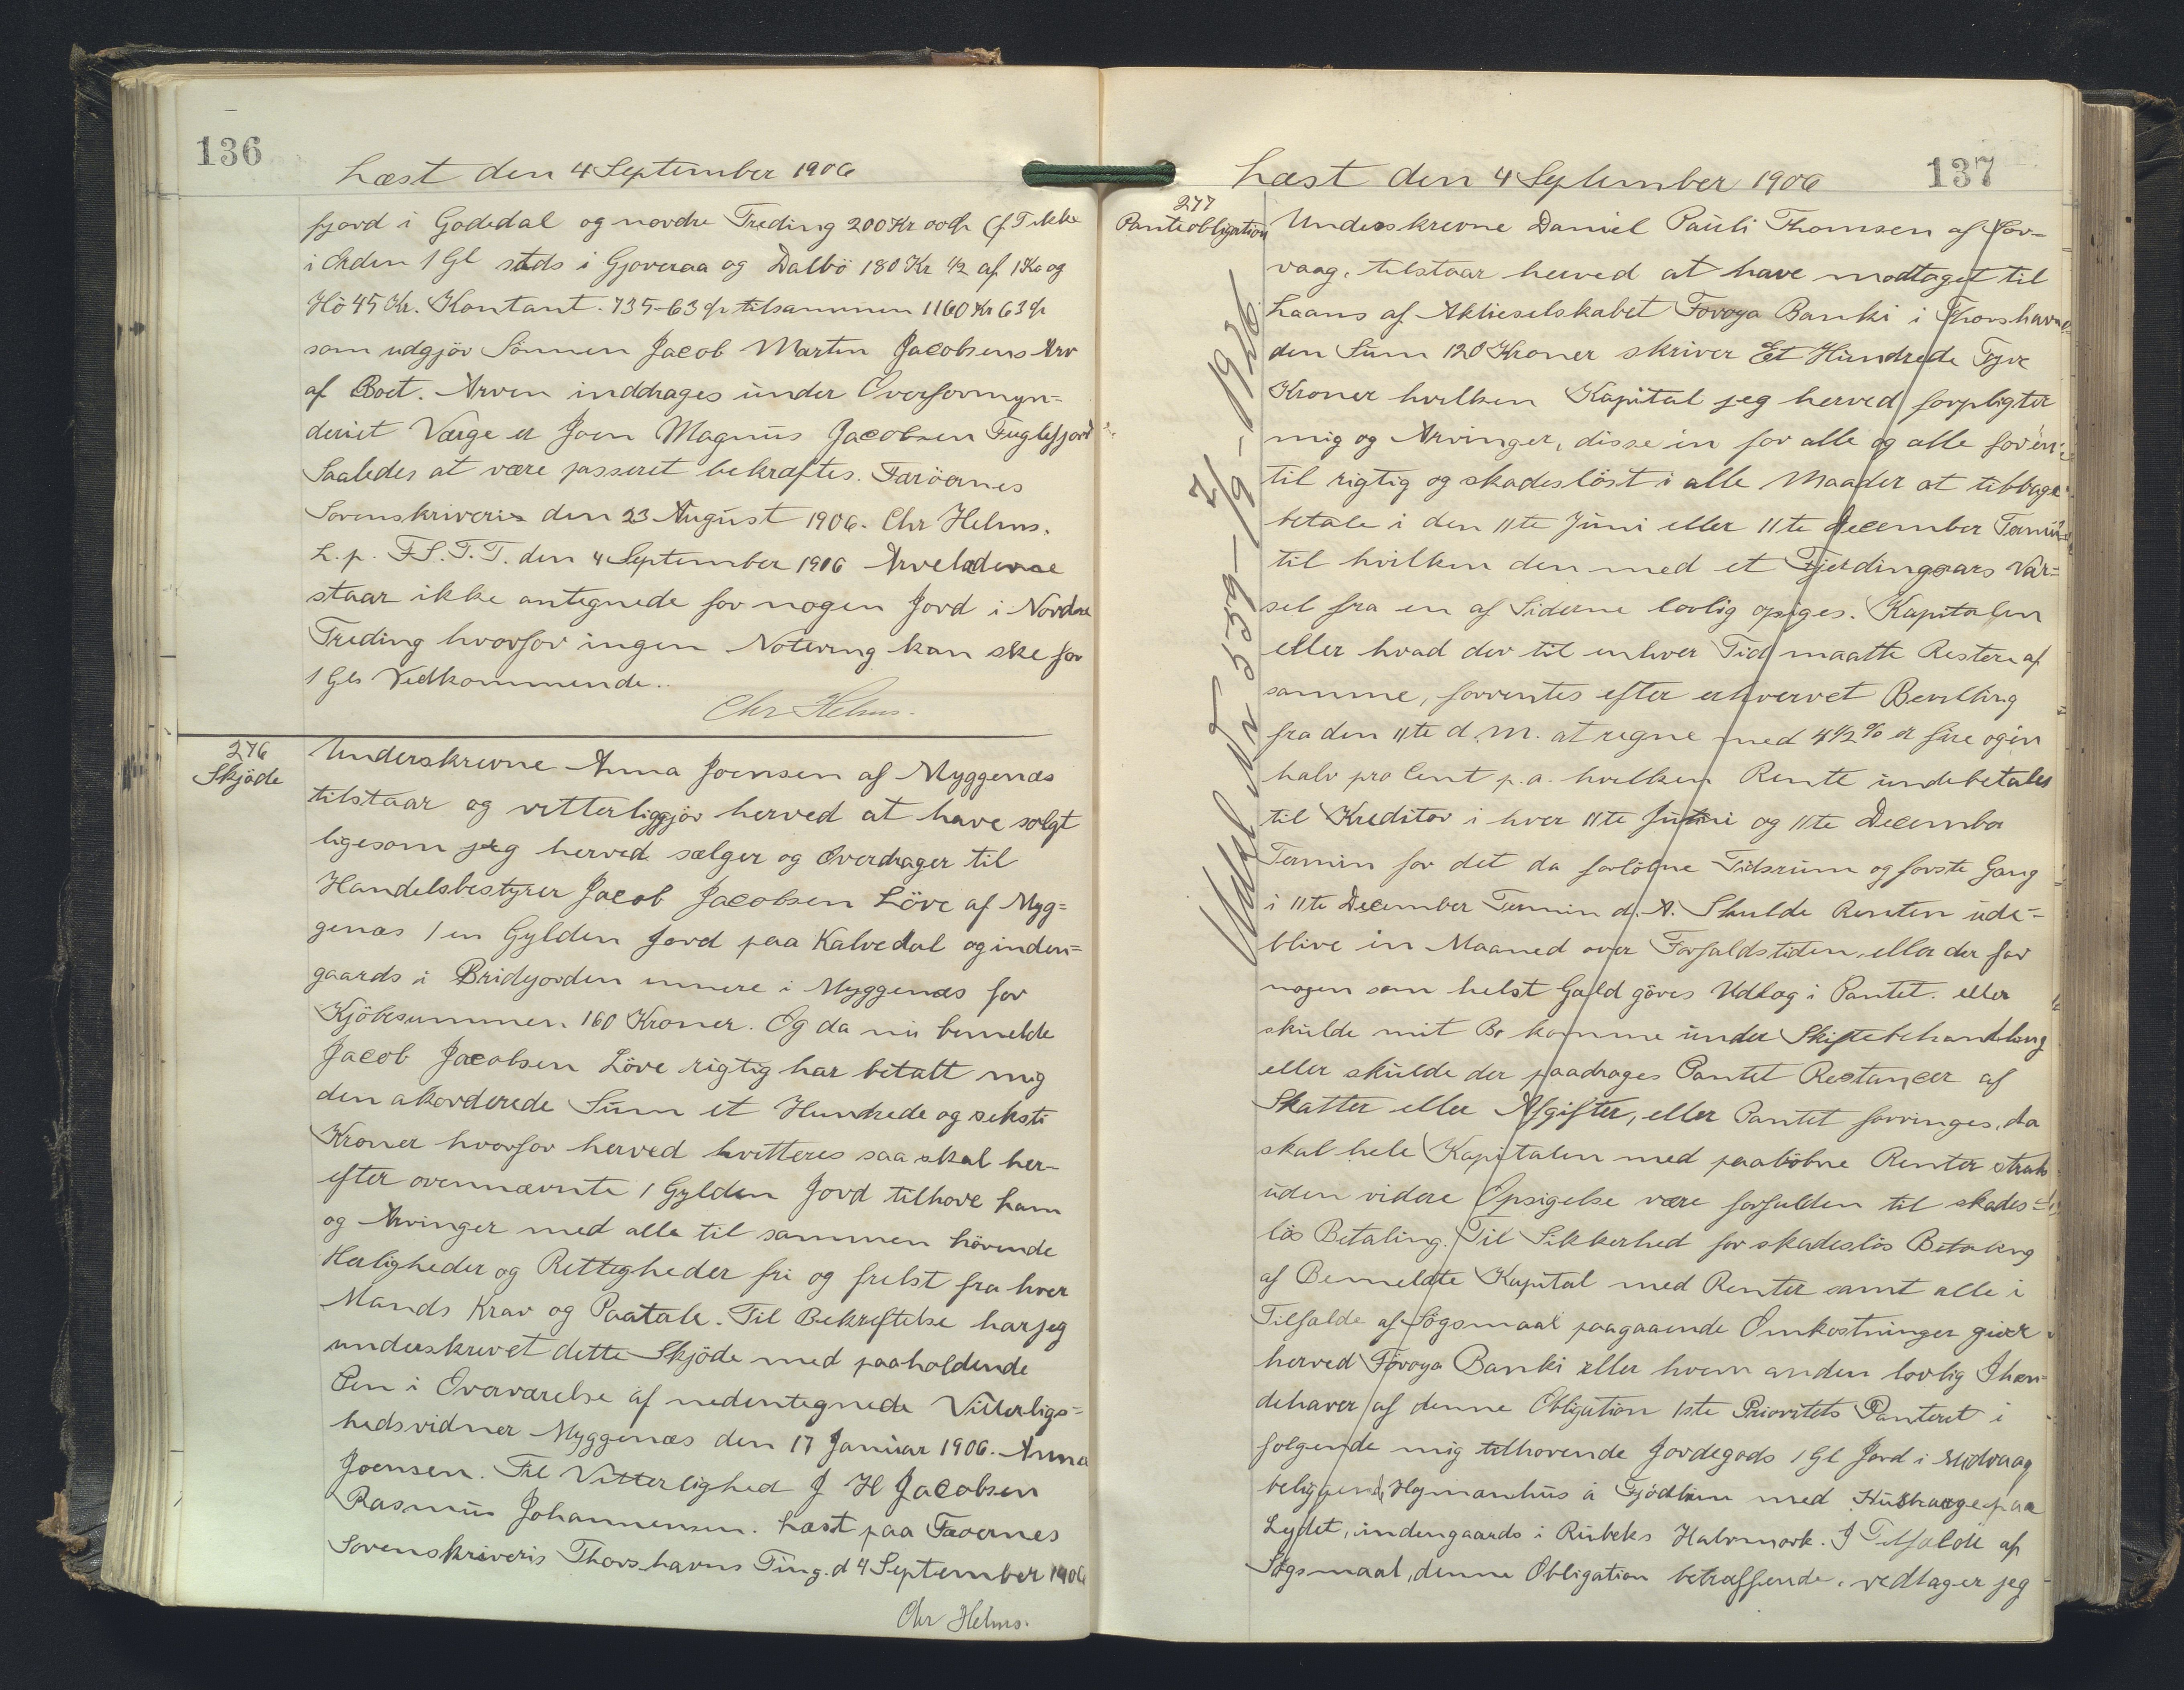 136
Læst den 4 September 1906
fjord i Godedal og nordre Treding 200 Kr
i Enden 1 Gl steds i Gjoveraa og Dalbö 180 Kr 1/2 af 1 Ko og
Hö 45 Kr. Kontant. 735-63 tilsammen 1160 Kr 63
som udgjör Sönnen Jacob Martin Jacobsens Arv
af Boet. Arven inddrages under Overformyn=
deriet Værge er Joen Magnus Jacobsen Fuglefjord
Saaledes at være passeret bekræftes. Færöernes
Sorenskriveri den 23 August 1906. Chr Helms.
L. p. F.S.T.T. den 4 September 1906 Arveladerne
staar ikke antegnede for nogen Jord i Nordre
Treding hvorfor ingen Notering kan ske for
1 Gls Vedkommende.
Chr Helms.
276
Skjöde
Underskrevne Anna Joensen af Myggenæs
tilstaar og vitterliggjör herved at have solgt
ligesom jeg herved sælger og Overdrager til
Handelsbestyrer Jacob Jacobsen Löve af Myg=
genæs 1 en Gylden Jord paa Kalvedal og inden=
gaards i Bridgjorden innere i Myggenæs for
Kjöbesummen. 160 Kroner. Og da nu bemeldte
Jacob Jacobsen Löve rigtig har betalt mig
den akorderede Sum et Hundrede og seksti
Kroner hvorfor herved kvitteres saa skal her-
efter ovennævnte 1 Gylden Jord tilhore ham
og Arvinger med alle til sammen hörende
Herligheder og Rettigheder fri og frelst fra hver
Mands Krav og Paatale. Til Bekreftelse har jeg
underskrevet dette Skjöde med paaholdende
Pen i Overværelse af nedentegnede Vitterligs=
hedsvidner Myggenæs den 17 Januar 1906. Anna
Joensen. Til Vitterlighed J H Jacobsen
Rasmus Johannensen. Læst paa Færernes
Sorenskriveris Thorshavns Ting. d 4 September 1906
Chr Helms.
137
Læst den 4 September 1906
277
Panteobligation
Udsl Nr 539-7/9-1926
Underskrevne Daniel Pauli Thomsen af Sor-
vaag, tilstaar herved at have modtaget til
Laans af Aktieselskabet Foroya Banki i Thorshavn
den Sum 120 Kroner skriver Et Hundrede Tyve
Kroner hvilken Kapital jeg herved forpligter
mig og Arvinger, disse en for alle og alle for en
til rigtig og skadeslöst i alle Maader at tilbage
betale i den 11te Juni eller 11te December Termin
til hvilken den med et Fjerdingaars Var=
sel fra en af Siderne lovlig opsiges. Kapitalen
eller hvad der til enhver Tid maatte Restere af
samme, forrentes efter erhvervet Bevilling
fra den 11te d. M. at regne med 4 1/2 % er fire og en
halv pro Cent p. a. hvilken Rente indebetales
til Kreditor i hver 11te Juni og 11te December
Termin for det da forlöbne Tidsrum og forste Gang
i 11te December Termin d. A. Skulde Renten ude=
blive en Maaned over Forfaldstiden, eller der for
nogen som helst Gjæld göres Udlæg i Pantet. eller
skulde mit Bo komme under Skiftebehandling
eller skulde der paadrages Pantet Restancer af
Skatter eller Afgifter, eller Pantet forringes, da
skal hele Kapitalen med paalöbne Renter straks
uden videre Opsigelse være forfalden til skades=
lös Betaling. Til Sikkerhed for skadeslös Betaling
af Bemeldte Kapital med Renter samt alle i
Tilfælde af Sögsmaal paagaaende Omkostninger giver
herved Föroya Banki eller hvem anden lovlig Ihæn=
dehaver af denne Obligation 1ste Prioritets Panteret i
folgende mig tilhorende Jordegods 1 Gl Jord i Midvaag
beliggende Hymanhus a Fjödtun med Hushauge paa
Lydet, indengaards i Rubeks Halvmork. I Tilfælde af
Sögsmaal, denne Obligation betræffende, vedtager jeg